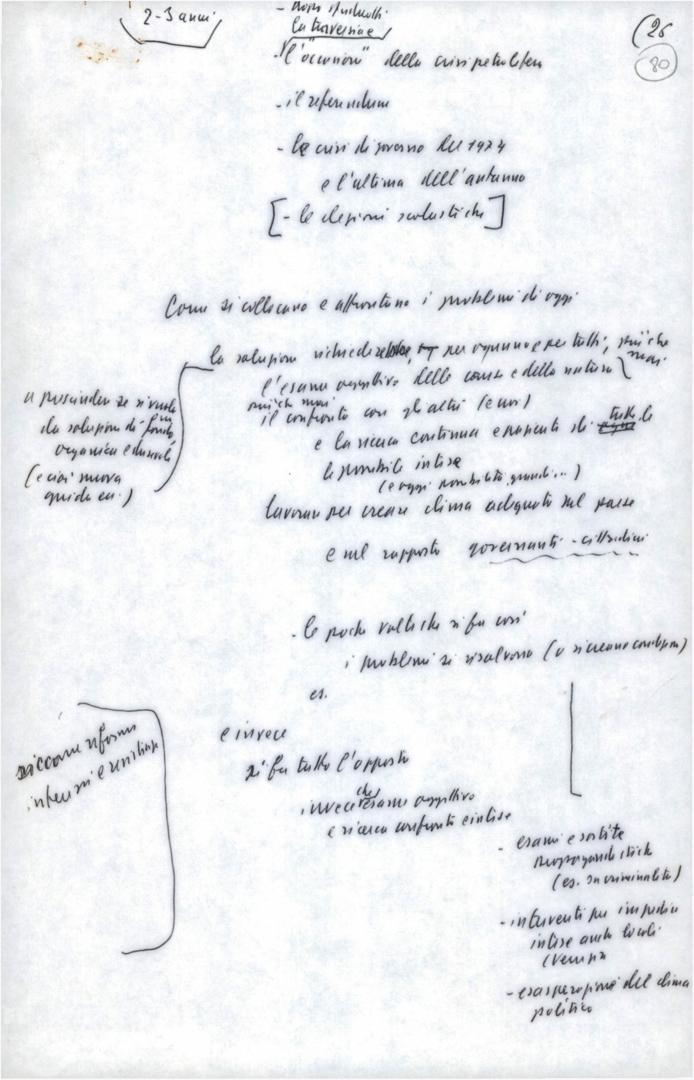 2-3 anni
(26
80
la traversiae
- l'"occasione" della crisi petrolifera
- il referendum
- le crisi di governo del 1974
e l'ultima dell'autunno
[- le elezioni scolastiche]
Come si collocano e affrontano i problemi di oggi
la soluzione richiederebbe, per ognuno e per tutti, più che mai
l'esame oggettivo delle cause e della natura
più che mai
il confronto con gli altri (e noi)
e la ricerca continua e paziente di tutte le
le possibili intese
(e oggi possibilità grandi...)
lavorare per creare clima adeguato nel paese
e nel rapporto governanti - cittadini
a prescindere se si vuole
da soluzioni di fondo,
organica e durevole
(e cioè nuova
guida ec.)
- le poche volte che si fa così
i problemi si risolvono (o si creano condizioni)
es.
e invece
si fa tutto l'opposto
invece che esame oggettivo
e ricerca confronti e intese
siccome riforma
interni e
- esami e sortite
propagandistiche
(es. su criminalità)
- interventi per impedire
intese anche locali
(Venezia
- esasperazione del clima
politico